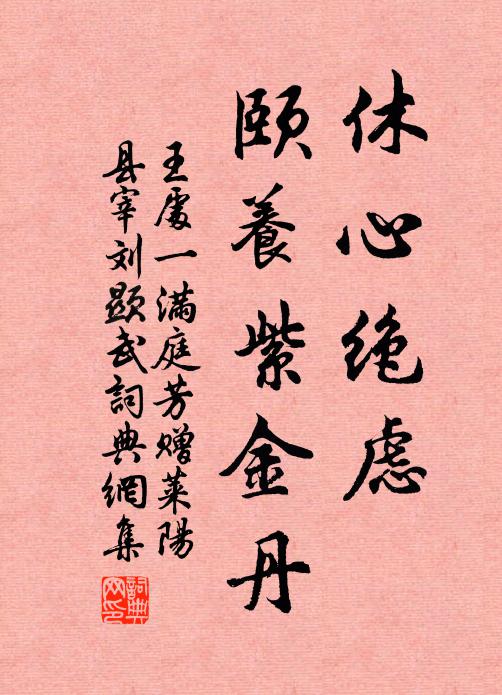 休心绝虑
颐養紫金丹
王處一满庭芳赠莱陽
县宰刘顯武詞典網集
詞典网印